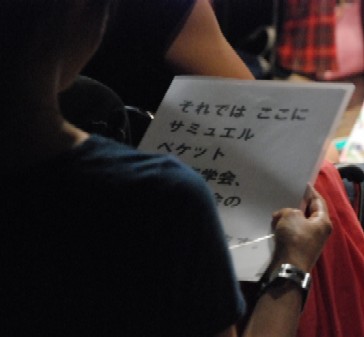 それでは ここに
サミュエル
ベケット
学会、
会の